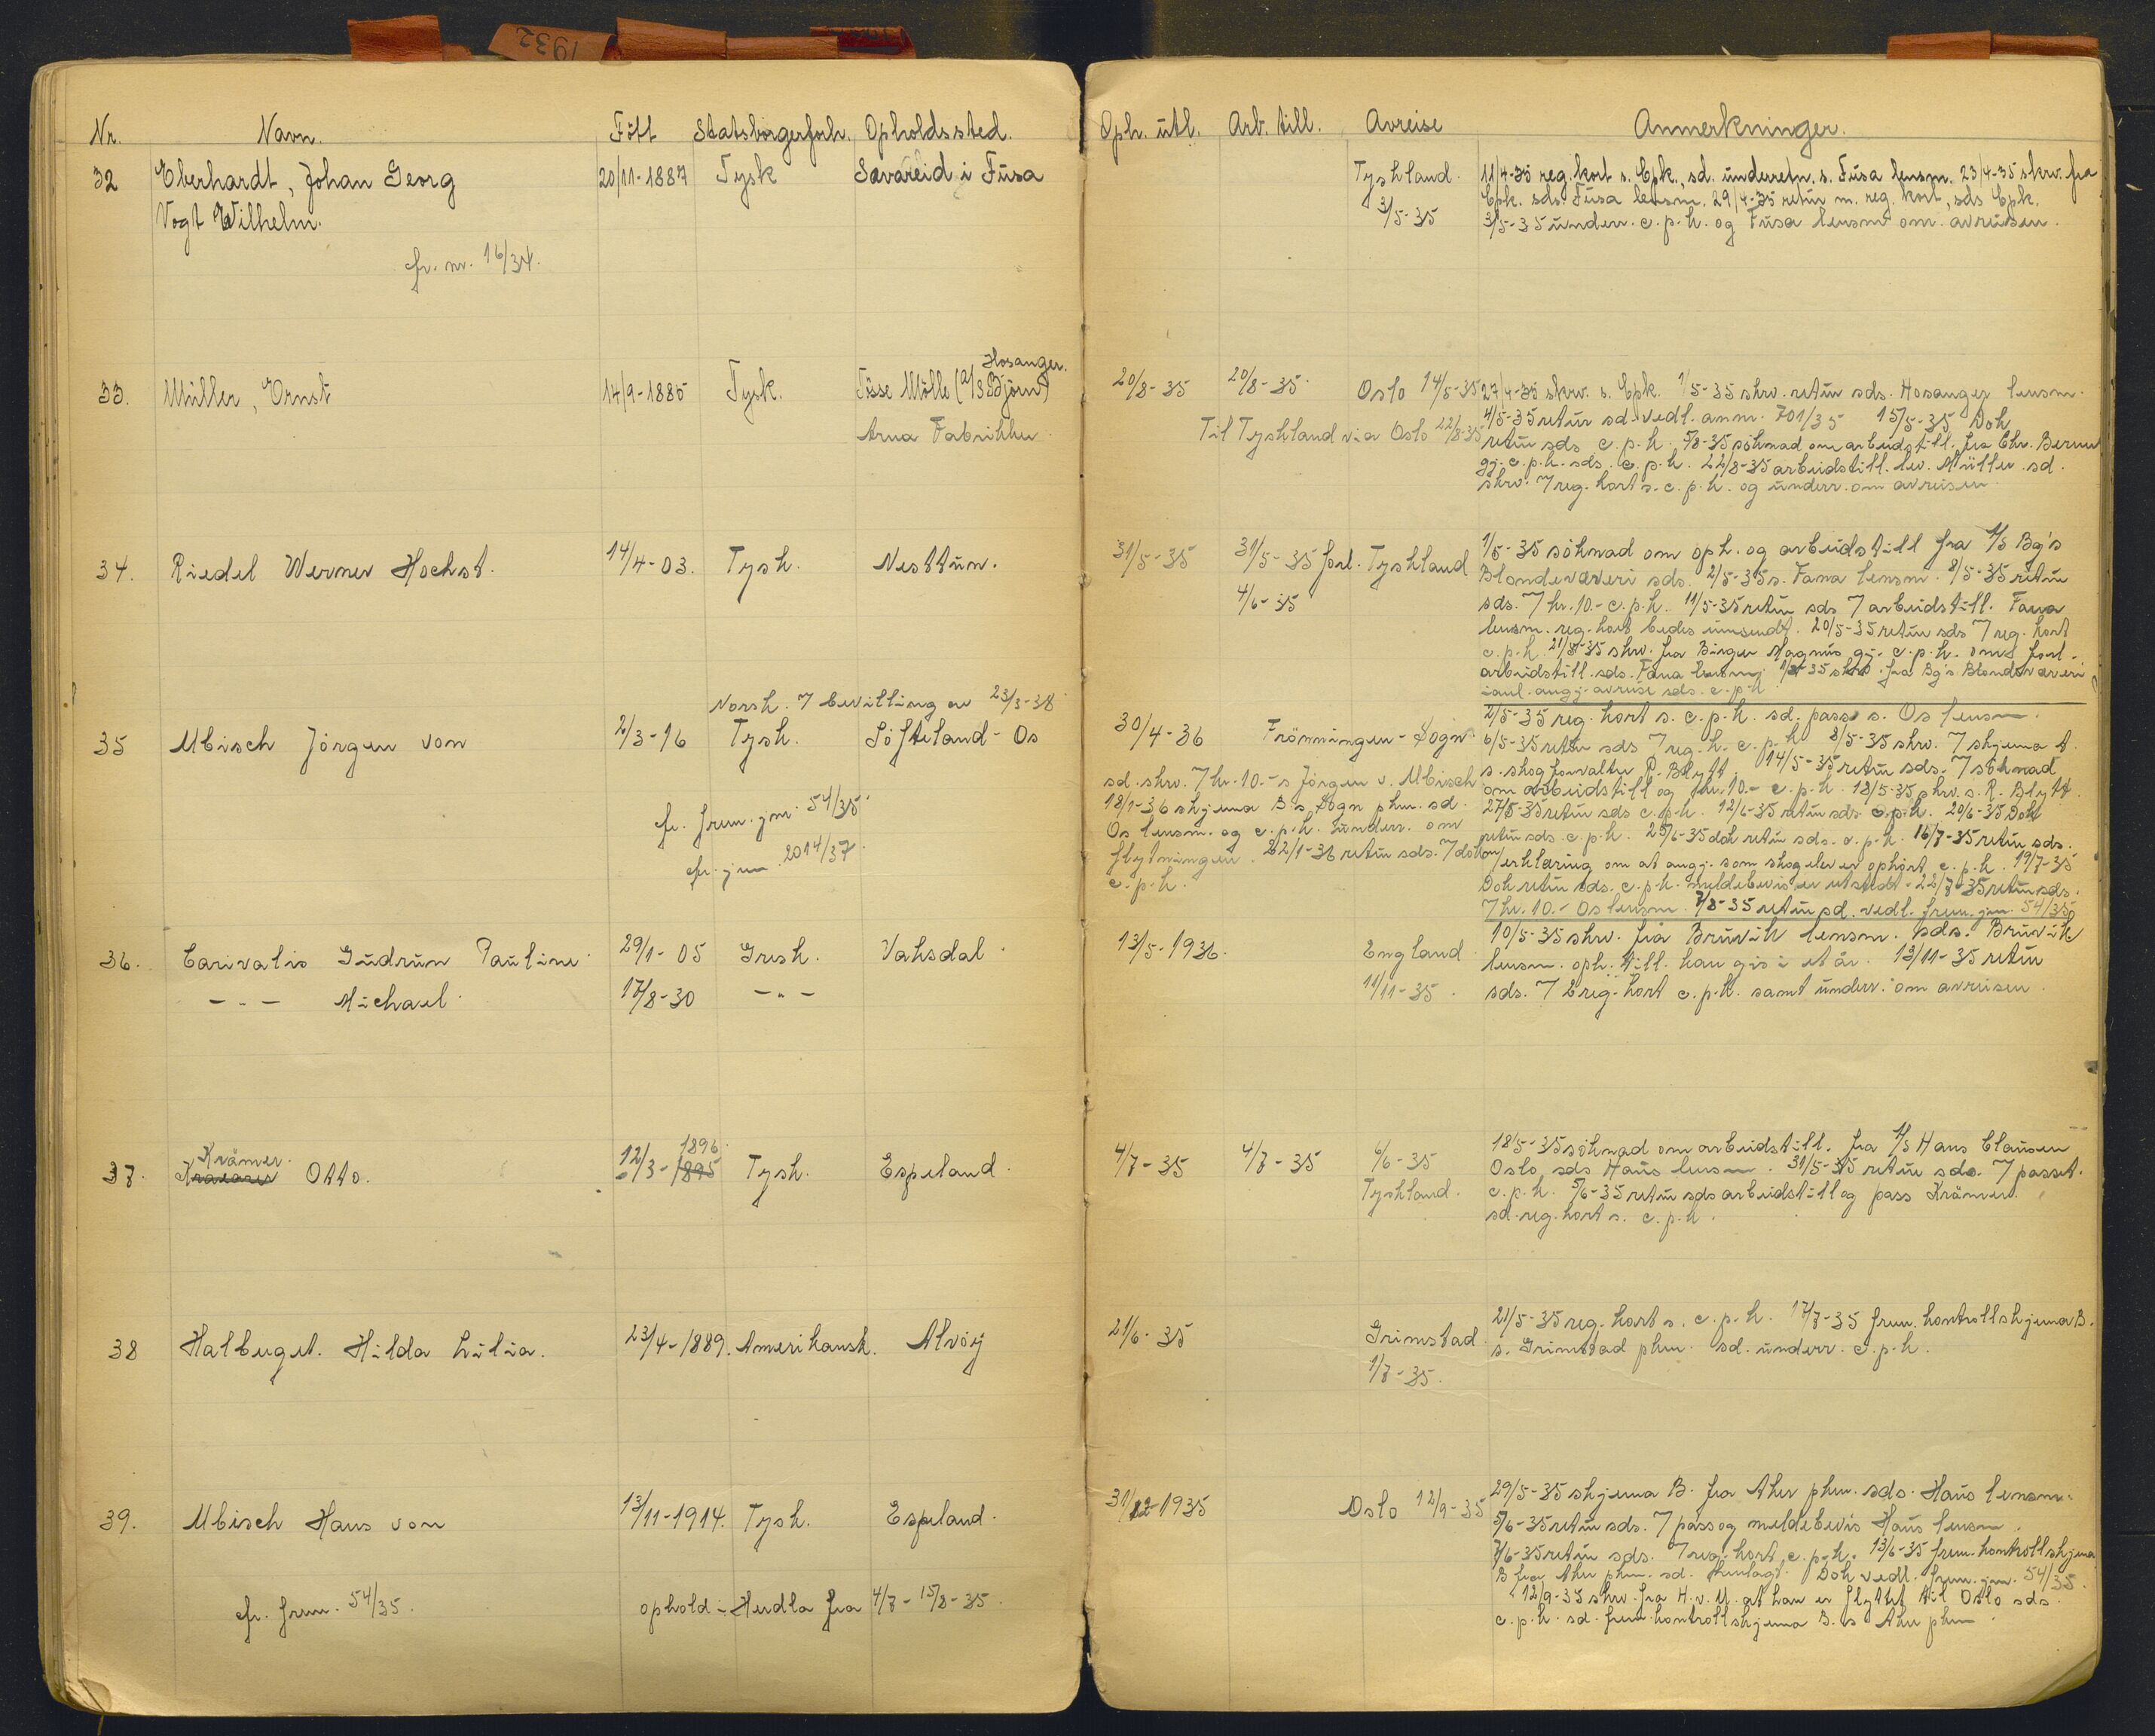 1932
Nr. Navn. Födt Statsborgerforh. Opholdssted. Oph. utl. Arb. till. Avreise Anmerkninger.
32 Eberhardt, Johan Georg 20/11-1887 Tysk Sævareid i Fusa Tyskland. 11/4-35 reg. kort s. Cpk., sd. underretn. s. Fusa lensm. 23/4-35 skrv. fra
Vogt Wilhelm. 3/5-35 Cpk. sds. Fusa lensm. 29/4-35 retur m. reg. kort, sds Cpk.
3/5-35 underr. c.p.k. og Fusa lensm om avreisen.
cfr. nr. 16/34.
Hosanger.
33. Müller, Ernst 14/9-1885 Tysk. Tösse Mölle (A/S Björn) 20/8-35 20/8-35. Oslo 14/5-35 27/4-35 skrv. s. Cpk. 1/5-35 skrv. retur sds. Hosanger lensm.
Arna Fabrikker. Til Tyskland via Oslo 22/8-35 4/5-35 retur sd. vedl. anm. 701/35 15/5-35 Dok
retur sds c.p.k. 5/8-35 söknad om arbeidstill. fra Chr. Berum
gj. c.p.k. sds. c.p.k. 22/8-35 arbeidstill. lev. Müller sd.
skrv. 7 reg. kort s. c.p.k. og underr. om avreisen
34. Riedel Werner Hochst. 14/4-03. Tysk. Nesttun. 31/5-35 31/5-35 forl. Tyskland 1/5-35 söknad om oph. og arbeidstill fra A/S Bg's
4/6-35 Blondeveveri sds. 2/5-35 s. Fana lensm. 8/5-35 retur
sds. 7 kr. 10.- c.p.k. 11/5-35 retur sds 7 arbeidstill. Fana
lensm. reg. kort bedes innsendt. 20/5-35 retur sds 7 reg. kort
c.p.k. 21/5-35 skrv. fra Birger Magnus gj. c.p.k. om forl.
arbeidstill. sds. Fana lensm. 35 skrv. fra Bg's Blondeveveri
angj. avreise sds. c.p.k.
Norsk. 7 bevilling av 23/3-38
35 Ubisch Jörgen von 2/3-16 Tysk. Söfteland - Os 30/4-36 Frönningen - Sogn 2/5-35 reg. kort s. c.p.k. sd. pass s. Os lensm.
6/5-35 retur sds 7 reg. k. c.p.k 8/5-35 skrv. 7 skjema t.
sd. skrv. 7 kr. 10.- s Jörgen v. Ubisch s. skogforvalter R. Blytt. 14/5-35 retur sds. 7 söknad
cfr. frem. jnr. 54/35. 18/1-36 skjema B s. Sogn pkm. sd. om arbeidstill og kr. 10.- c.p.k. 18/5-35 skrv. s. R. Blytt.
Os lensm. og c.p.k. underr. om 27/5-35 retur sds c.p.k. 12/6-35 retur sds c.p.k. 20/6-35 Dok
cfr. jnr 2014/37. flytningen. 22/1-36 retur sds. 7 dok retur sds. c.p.k. 25/6-35 dok retur sds. c.p.k. 16/7-35 retur sds.
c.p.k. erklæring om at angj. som skogelev er ophört c.p.k. 19/7-35
Dok retur sds. c.p.k. meldebevis er utstedt. 22/7-35 retur sds.
7 kr. 10.- Os lensm. 7/8-35 retur sd. vedl. frem. jnr. 54/35.
36. Carivalis Gudrun Pauline. 29/1-05 Gresk. Vaksdal. 13/5-1936. England 10/5-35 skrv. fra Bruvik lensm. sds. Bruvik
lensm. oph. till. kan gis i et år. 13/11-35 retur
- " - Michael. 17/8-30 - " - 11/11-35. sds. 7 2 reg. kort c.p.k. samt underr. om avreisen.
Krämer. 1896.
37. Otto. 12/3-1895 Tysk. Espeland. 4/7-35 4/7-35 4/6-35 18/5-35 söknad om arbeidstill. fra A/S Hans Clausen
Tyskland. Oslo, sds Haus lensm. 31/5-35 retur sds. 7 passet.
c.p.k. 5/6-35 retur sds arbeidstill og pass Krämer.
sd. reg. kort s. c.p.k.
38 Halbuget. Hilda Lilia. 23/4-1889. Amerikansk. Alvöy 21/6-35 Grimstad 21/5-35 reg. kort s. c.p.k. 17/7-35 frem. kontrollskjema B.
1/7-35. s. Grimstad pkm. sd. underr. c.p.k.
39. Ubisch Hans von 13/11-1914. Tysk. Espeland. 31/12-1935 Oslo 12/9-35 29/5-35 skjema B. fra Aker pkm. sds. Haus lensm.
5/6-35 retur sds. 7 pass og meldebevis Haus lensm.
7/6-35 retur sds. 7 reg. kort c.p.k. 13/6-35 frem. kontrollskjema
B fra Aker pkm. sd. henlagt. Dok vedl. frem. jnr. 54/35.
cfr. frem. 54/35. ophold i Herdla fra 4/7-15/8-35. 12/9-35 skrv. fra H. v. U. at han er flyttet til Oslo sds.
c.p.k. sd. frem. kontrollskjema B. s Aker pkm